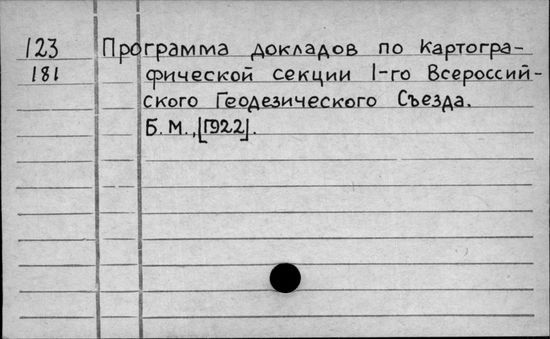 123 Программа докладов по Картогра-
181 фической секции I-го Всероссий-
ского Геодезического Съезда.
Б.М.,[1922].